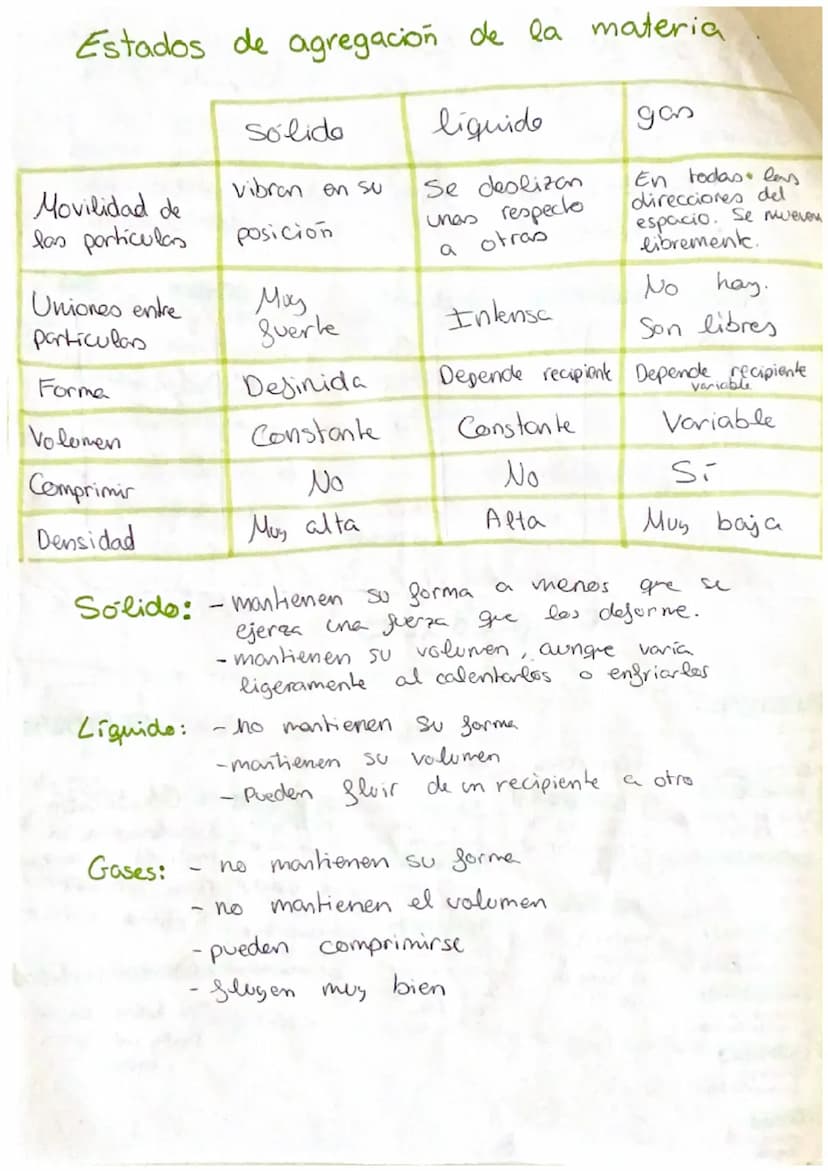 Estados de agregación de la materia.
sólido líquido gas
Movilidad de las partículas
vibran en su posición
Se deslizan unas respecto a otras
En todas las direcciones del espacio. Se mueven libremente.
Uniones entre partículas
Muy fuerte
Intensa
No hay. Son libres
Forma Definida Depende recipiente Depende recipiente variable
Volumen Constante Constante Variable
Comprimir No No Sí
Densidad Muy alta Alta Muy baja
Sólido: - mantienen su forma a menos que se
ejerza una fuerza que los deforme.
- mantienen su volumen, aunque varía
ligeramente al calentarlos o enfriarlos
Líquido: - no mantienen su forma
- mantienen su volumen
- Pueden fluir de un recipiente a otro
Gases: - no mantienen su forma
- no mantienen el volumen
- pueden comprimirse
- fluyen muy bien